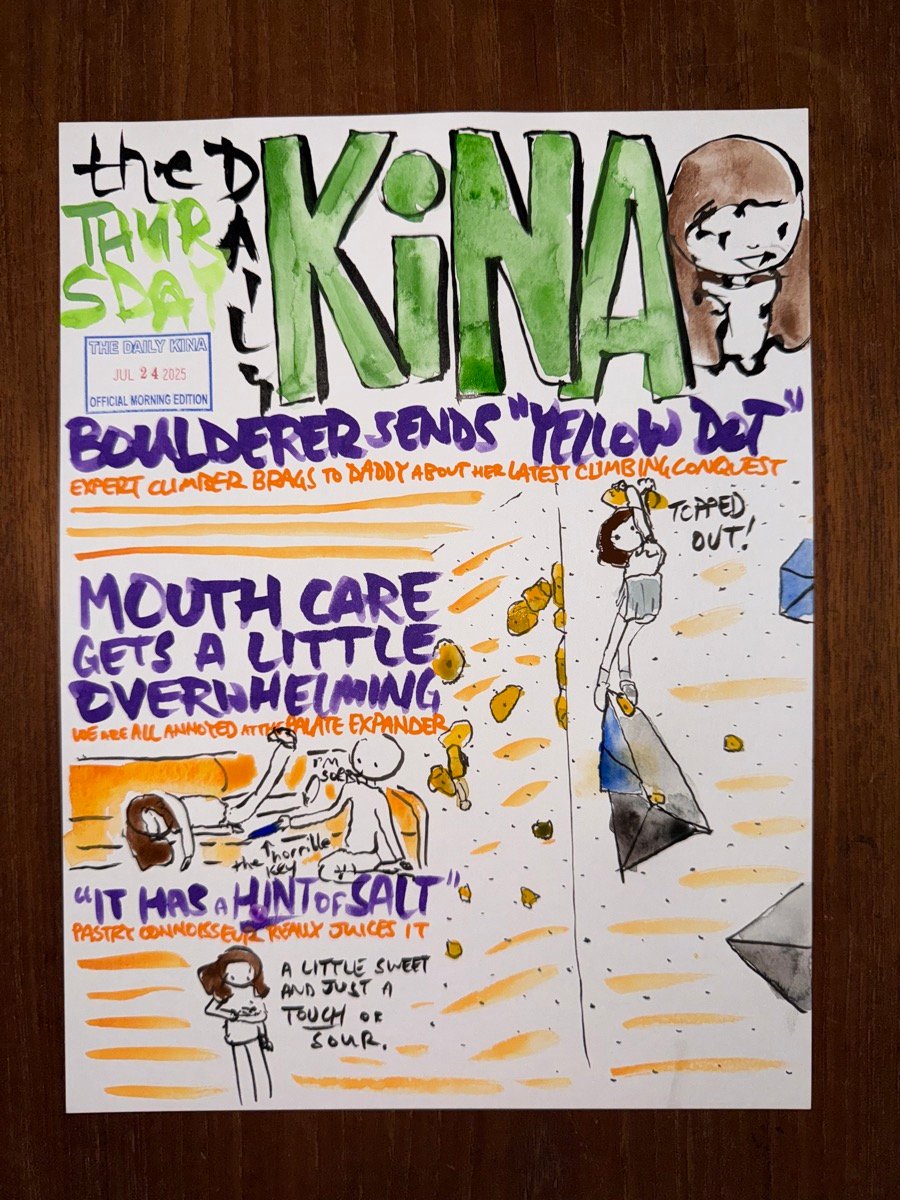 the DAILY
KiNA
THUR
SDAY
THE DAILY KINA
JUL 24 2025
OFFICIAL MORNING EDITION
BOULDERER SENDS "YELLOW DOT"
EXPERT CLIMBER BRAGS TO DADDY ABOUT HER LATEST CLIMBING CONQUEST
TOPPED
OUT!
MOUTH CARE
GETS A LITTLE
OVERWHELMING
WE ARE ALL ANNOYED AT THE PALATE EXPANDER
I'M
SORRY
the horrible
key
"IT HAS A HINT OF SALT"
PASTRY CONNOISSEUR REALLY JUICES IT
A LITTLE SWEET
AND JUST A
TOUCH OF
SOUR.